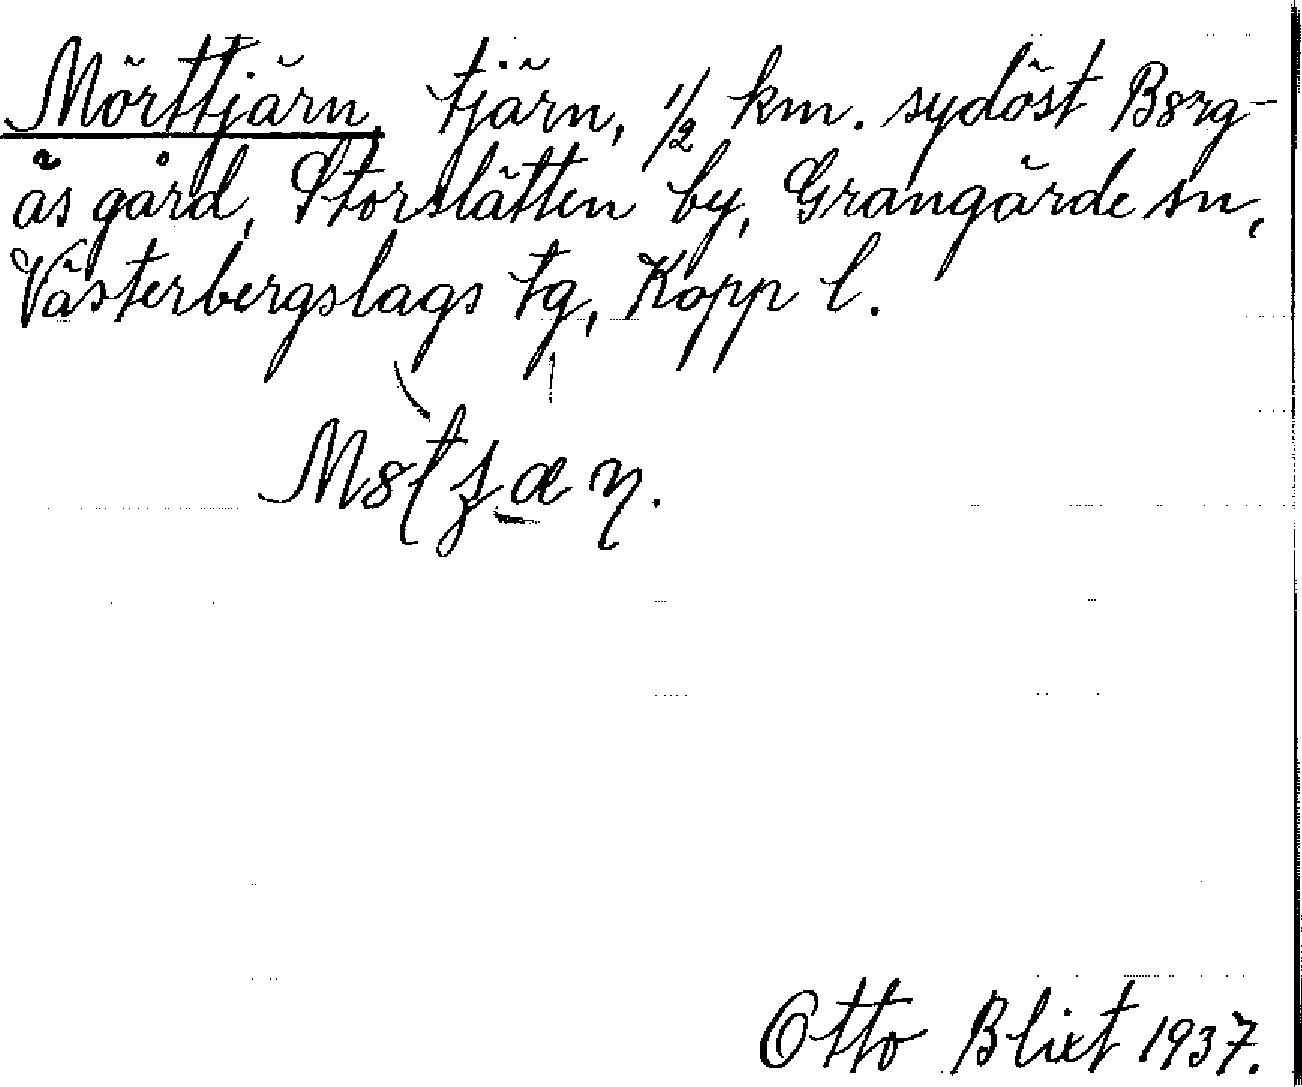 Mörttjärn, tjärn, 1/2 km. sydöst Borg-
ås gård, Storslätten by, Grangärde sn,
Västerbergslags tg, Kopp l.
Otto Blixt 1937.